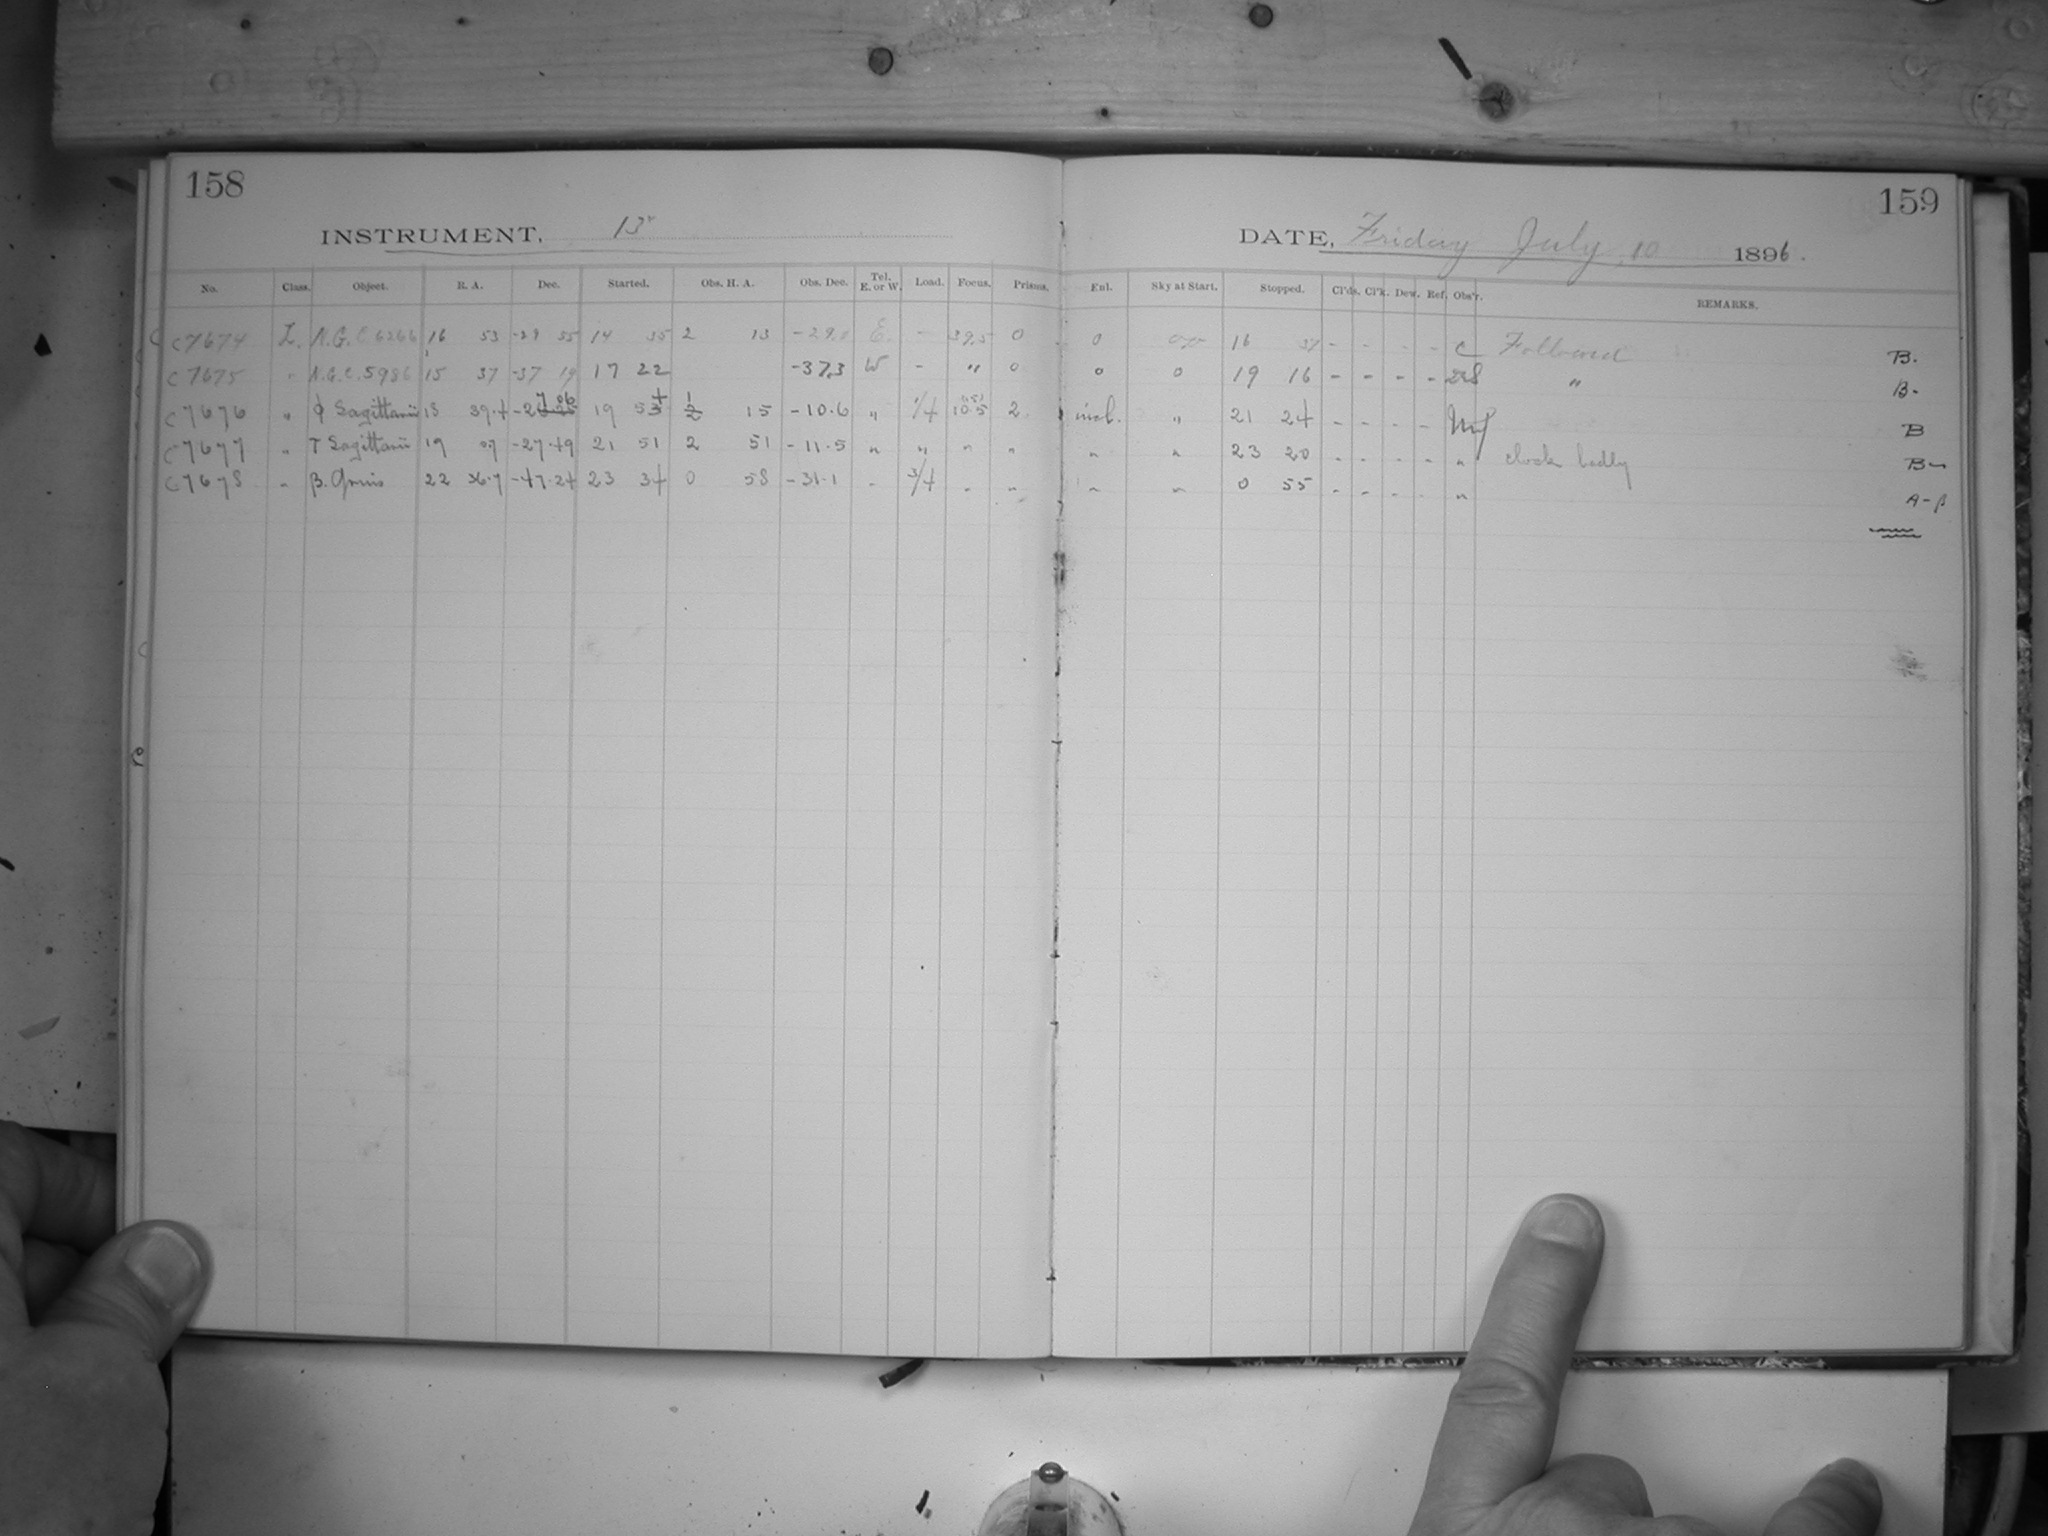 158
INSTRUMENT, 13"
No. Class. Object. R. A. Dec. Started. Obs. H. A. Obs. Dec. Tel. E. or W. Load. Focus. Prisms.
C 7674 L. N.G.C 6266 16 53 -29 55 14 35 2 13 -29.0 E. - 39.5 0
C 7675 " N.G.C. 5986 15 37 -37 19 17 22 -37.3 W - " 0
C 7676 " φ Sagittarii 18 39.4 19 54 15 -10.6 " 1/4 10.5 2
C 7677 " τ Sagittarii 19 0.7 -27.49 21 51 2 51 -11.5 " " " "
C 7678 " β. Gruis 22 36.7 -47.24 23 34 0 58 -31.1 " 3/4 " "
159
DATE, Friday July 10 1896.
Enl. Sky at Start. Stopped. Cl'ds. Cl'k. Dew. Ref. Obs'r. REMARKS.
0 16 37 - - - - C Followed B.
0 0 19 16 - - - - " B-
incl. " 21 24 - - - - B
" " 23 20 - - - - " clock badly B-
" " 0 55 - - - - "